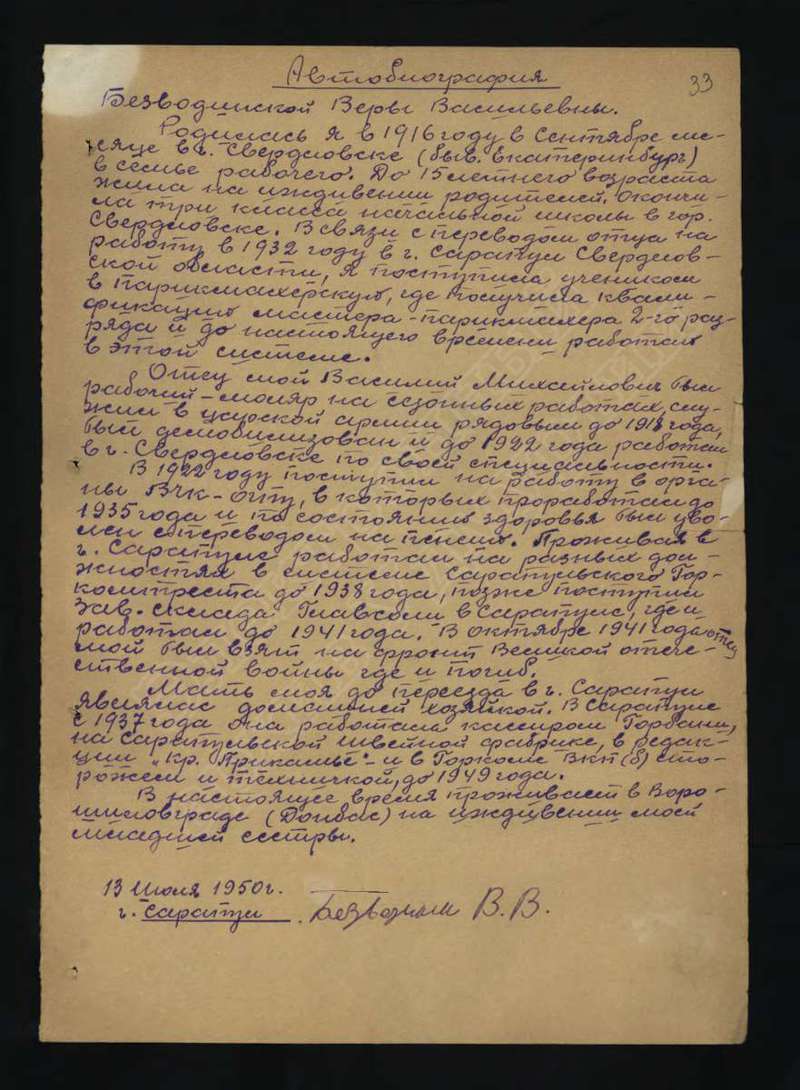 Автобиография
33
Безводинской Веры Васильевны.
Родилась я в 1916 году в сентябре ме-
сяце в г. Свердловске (быв. Екатеринбург)
в семье рабочего. До 15 летнего возраста
жила на иждивении родителей. Окончи-
ла три класса начальной школы в гор.
Свердловске. В связи с переводом отца на
работу в 1932 году в г. Сарапул Свердлов-
ской области, я поступила учеником
в парикмахерскую, где получила квали-
фикацию мастера-парикмахера 2-го раз-
ряда и до настоящего времени работаю
в этой системе.
Отец мой Василий Михайлович был
рабочий-маляр на сезонных работах, слу-
жил в царской армии рядовым до 1918 года,
был демобилизован и до 1922 года работал
в г. Свердловске по своей специальности.
В 1922 году поступил на работу в орга-
ны ВЧК-ОГПУ, в которых проработал до
1935 года и по состоянию здоровья был уво-
лен с переводом на пенсию. Проживая в
г. Сарапуле работал на разных дол-
жностях в системе Сарапульского Гор-
комтреста до 1938 года, позже поступил
зав. склада Главсоли в Сарапуле, где и
работал до 1941 года. В октябре 1941 года отец
мой был взят на фронт Великой отече-
ственной войны где и погиб.
Мать моя до переезда в г. Сарапул
являлась домашней хозяйкой. В Сарапуле
с 1937 года она работала кассиром Горбани,
на Сарапульской швейной фабрике, в редак-
ции „Кр. Прикамье" и в Горкоме ВКП(б) сто-
рожем и техничкой, до 1949 года.
В настоящее время проживает в Воро-
шиловграде (Донбас) на иждивении моей
младшей сестры.
13 июля 1950 г.
г. Сарапул
В. В.